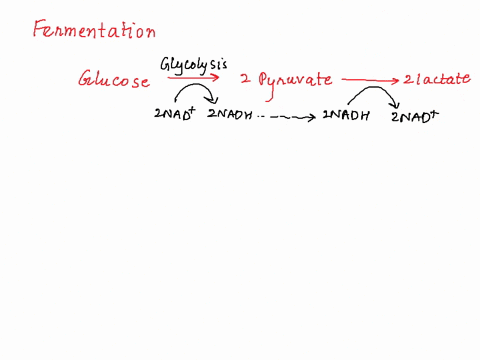 Fermentation
Glycolysis
Glucose 2 Pyruvate 2 lactate
2NAD+ 2NADH 2NADH 2NAD+